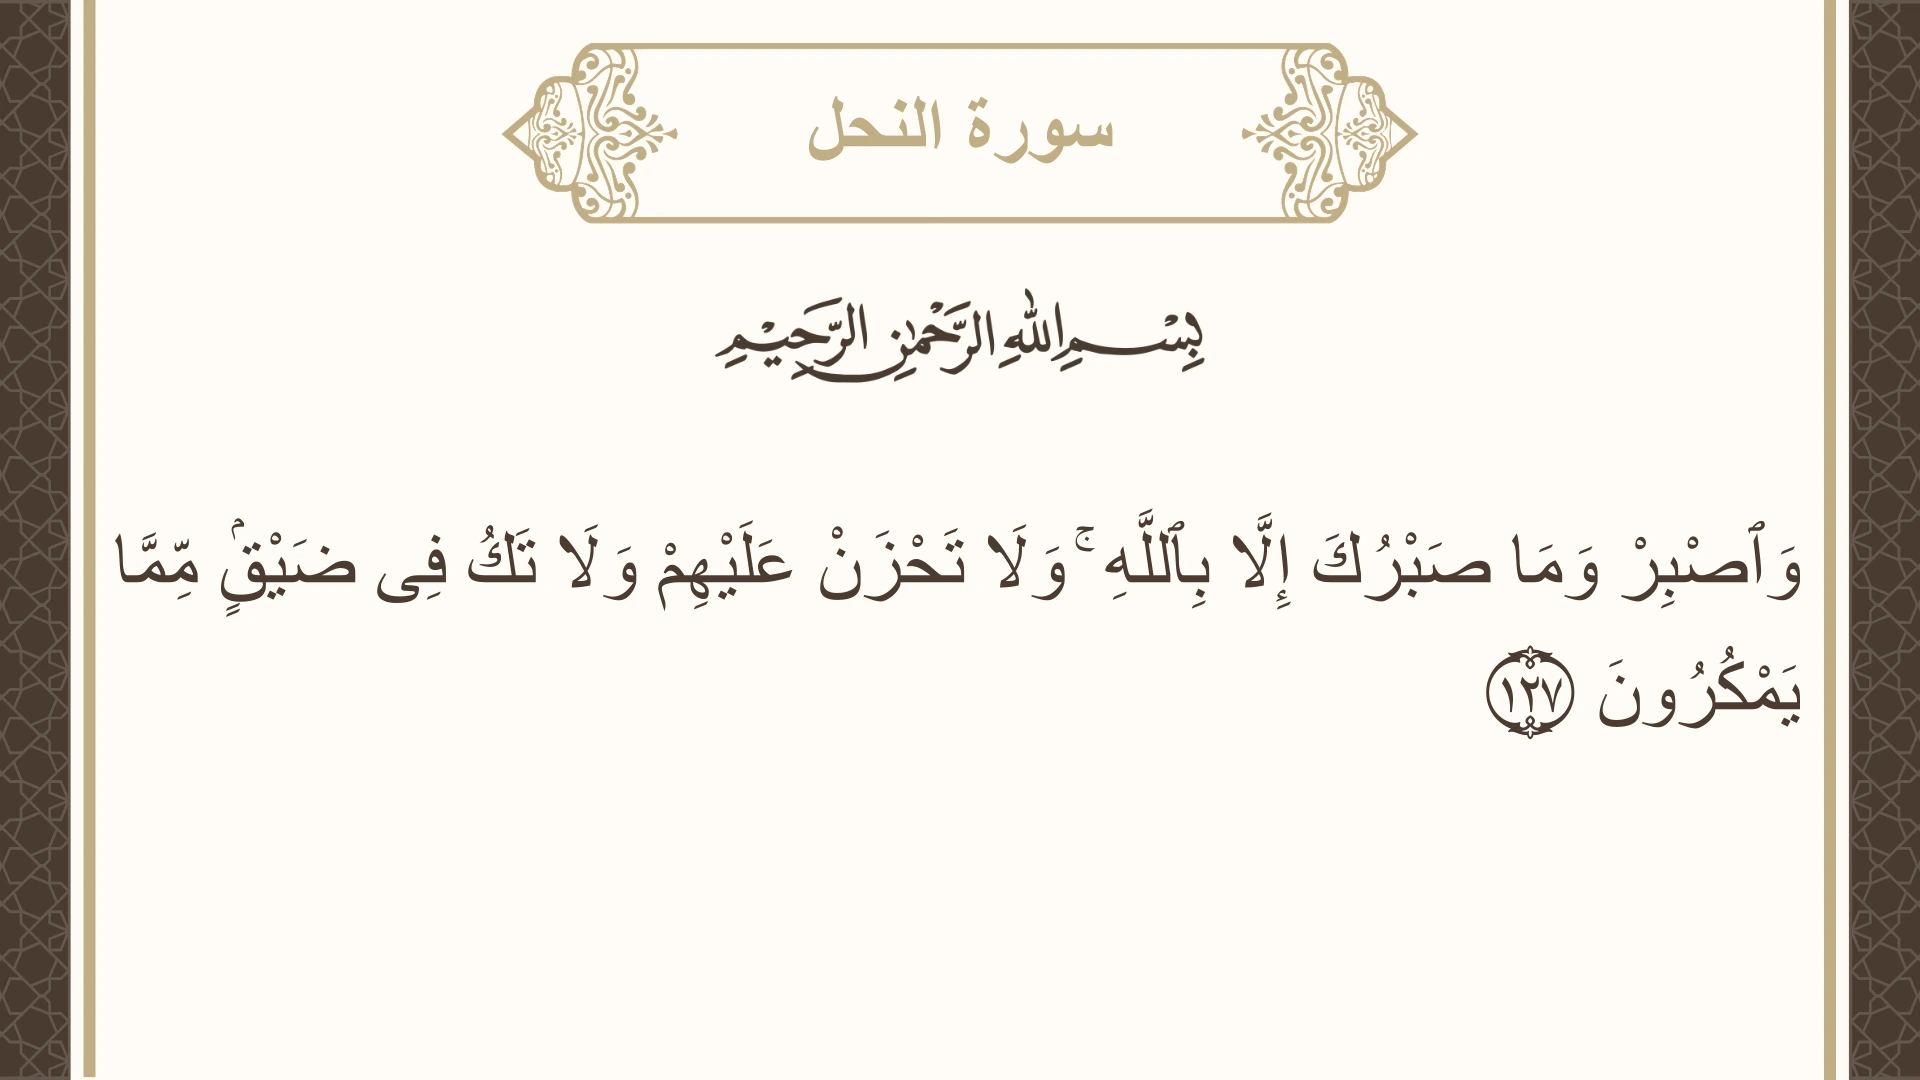 سورة النحل
بِسْمِ اللهِ الرَّحْمٰنِ الرَّحِيْمِ
وَٱصْبِرْ وَمَا صَبْرُكَ إِلَّا بِٱللَّهِ ۚ وَلَا تَحْزَنْ عَلَيْهِمْ وَلَا تَكُ فِى ضَيْقٍۢ مِّمَّا
يَمْكُرُونَ ١٢٧